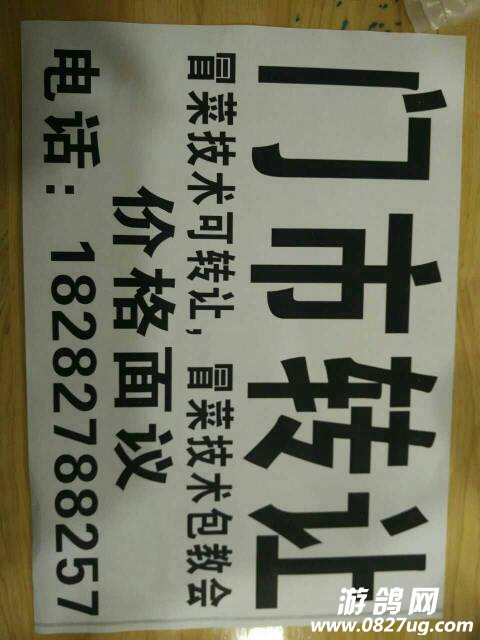 门市转让
冒菜技术可转让，冒菜技术包教会
价格面议
电话：18282788257
游鸽网
www.0827ug.com